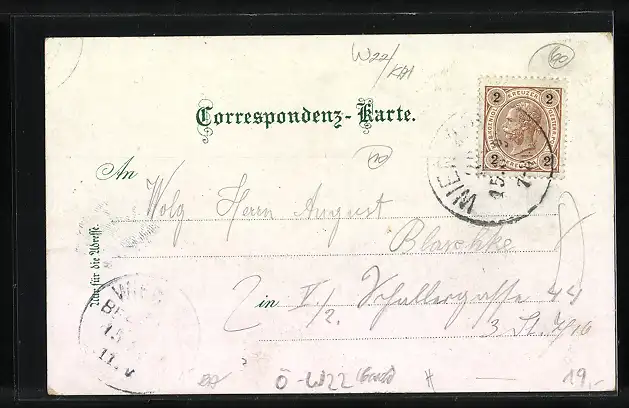 W22/
KA1
60
Correspondenz-Karte.
2 KREUZER 2
2 2
WIEN
15.
An
10
Wolg Herrn August
Blaschke
Nur für die Adresse.
in V/2.
44
3 St. 7/16
WIEN
11.V
Ö-W22
19,-